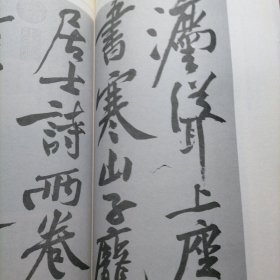 灋聳上座
書寒山子龐
居士詩兩卷